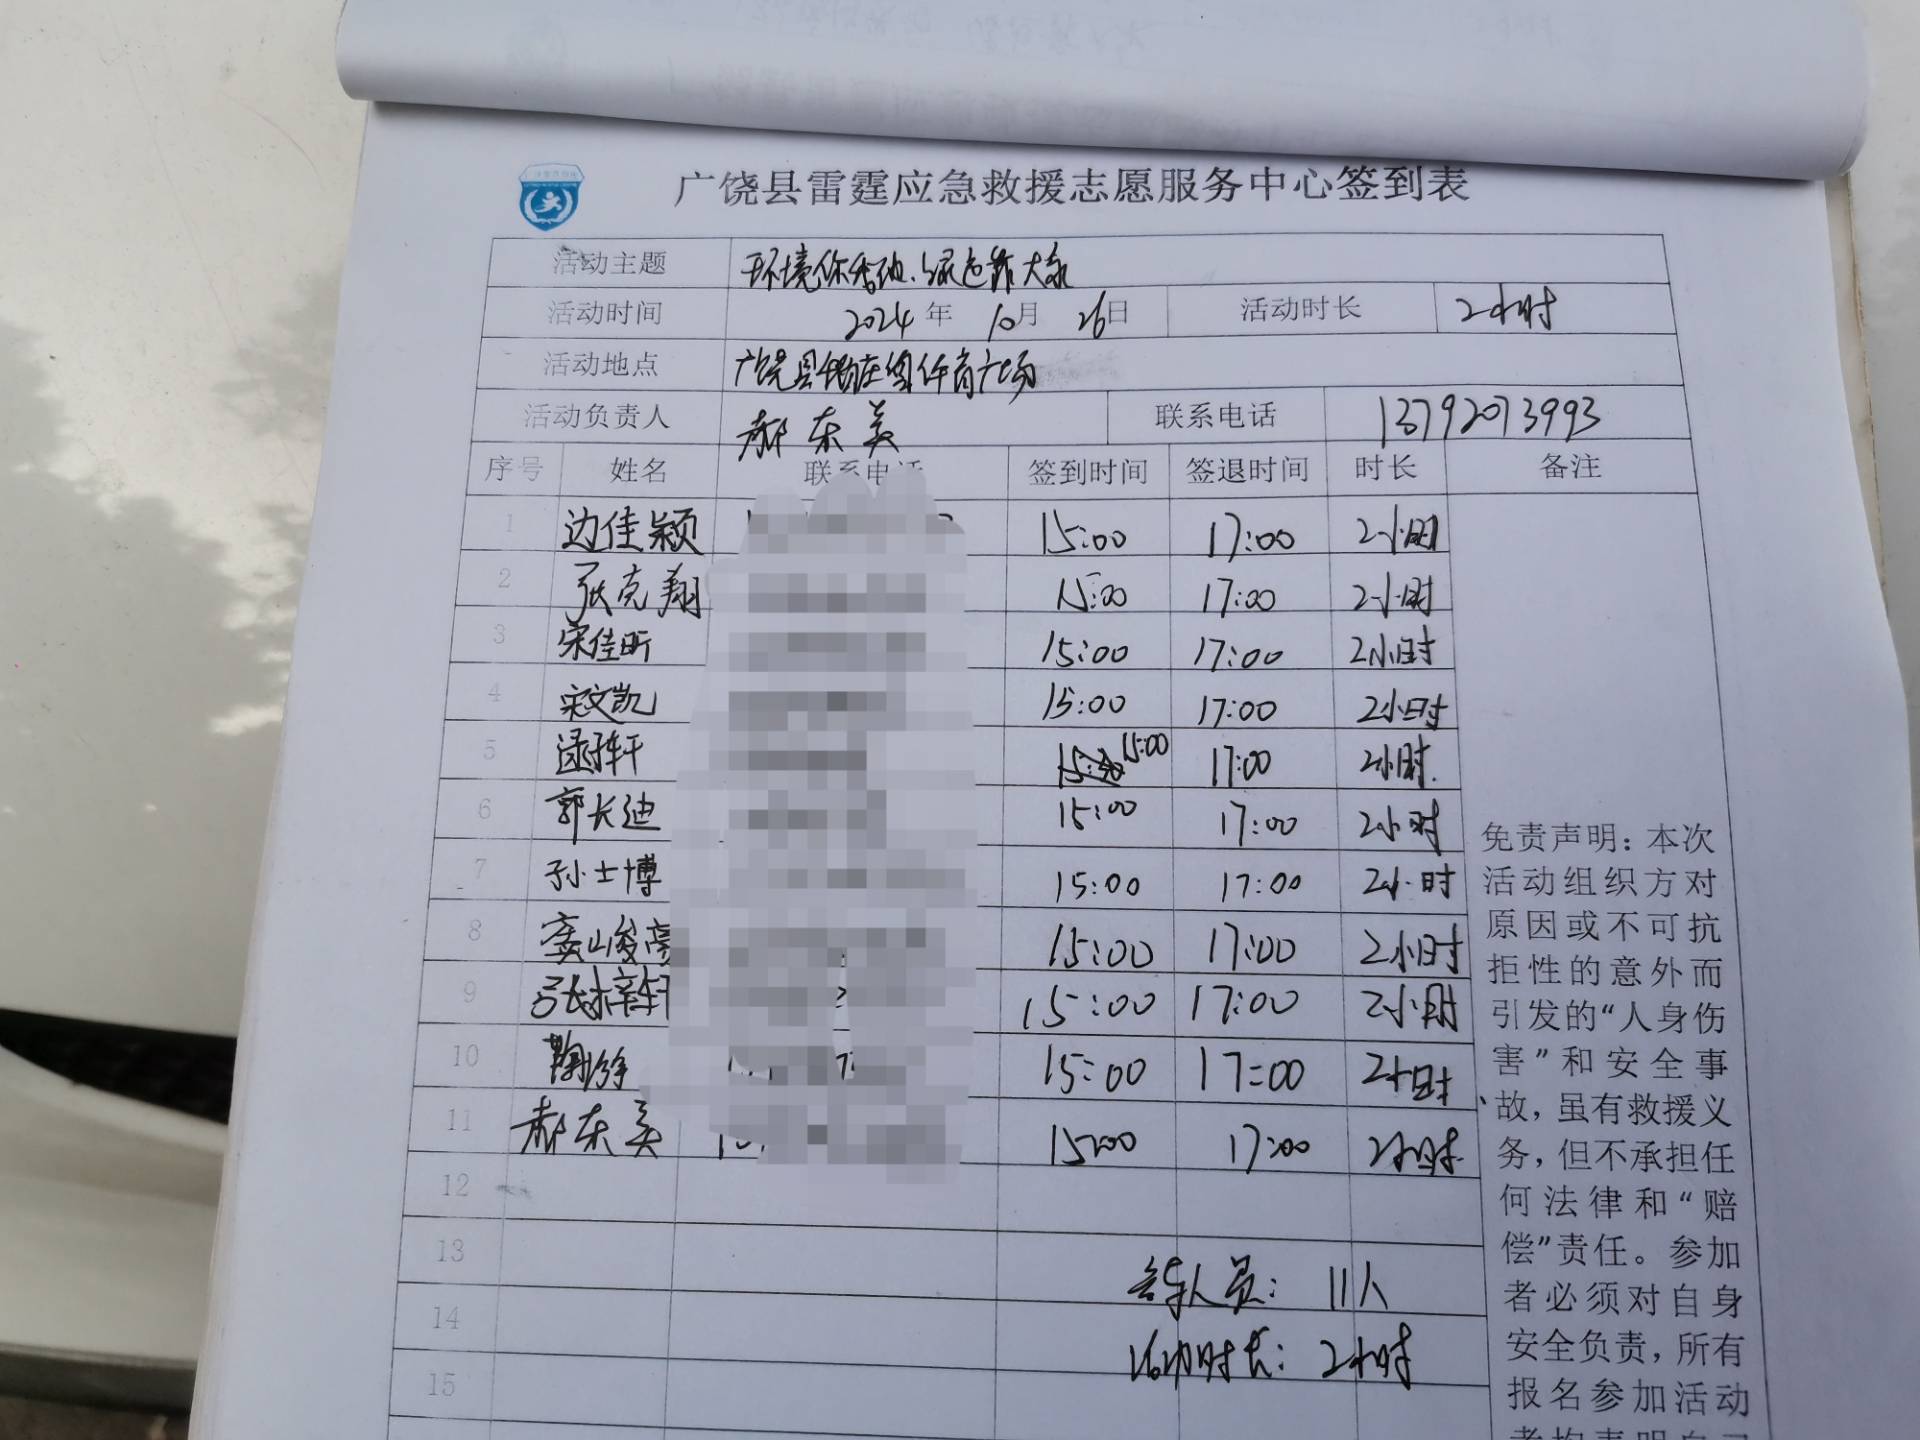 广饶县雷霆应急救援志愿服务中心签到表
活动主题 环境你
活动时间 2024年10月26日 活动时长 2小时
活动地点 广饶县 体育广场
活动负责人 郝东美 联系电话 13792073993
序号 姓名 联系电话 签到时间 签退时间 时长 备注
1 边佳颖 15:00 17:00 2小时
2 张克翔 15:00 17:00 2小时
3 宋佳昕 15:00 17:00 2小时
4 宋文凯 15:00 17:00 2小时
5 15:00 17:00 2小时
6 郭长迪 15:00 17:00 2小时
7 孙士博 15:00 17:00 2小时
8 15:00 17:00 2小时
9 15:00 17:00 2小时
10 15:00 17:00 2小时
11 郝东美 15:00 17:00 2小时
12
13
人员：11人
14
活动时长：2小时
15
免责声明：本次
活动组织方对
原因或不可抗
拒性的意外而
引发的“人身伤
害”和安全事
故，虽有救援义
务，但不承担任
何法律和“赔
偿”责任。参加
者必须对自身
安全负责，所有
报名参加活动